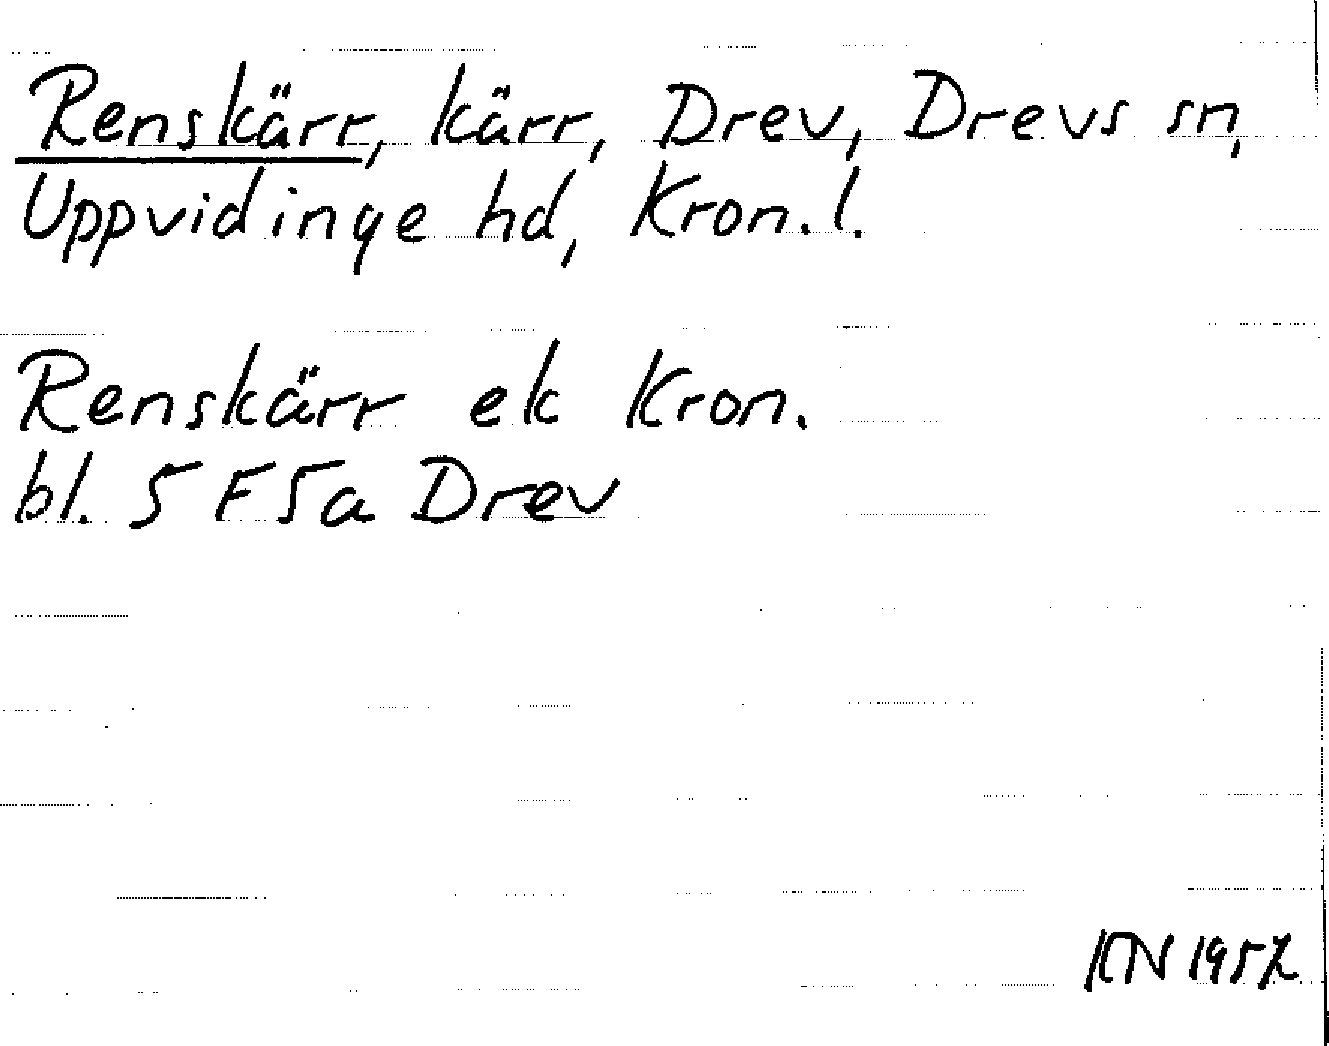 Renskärr, kärr, Drev, Drevs sn,
Uppvidinge hd, Kron. l.
Renskärr ek Kron.
bl. 5 F 5a Drev
KN 1957